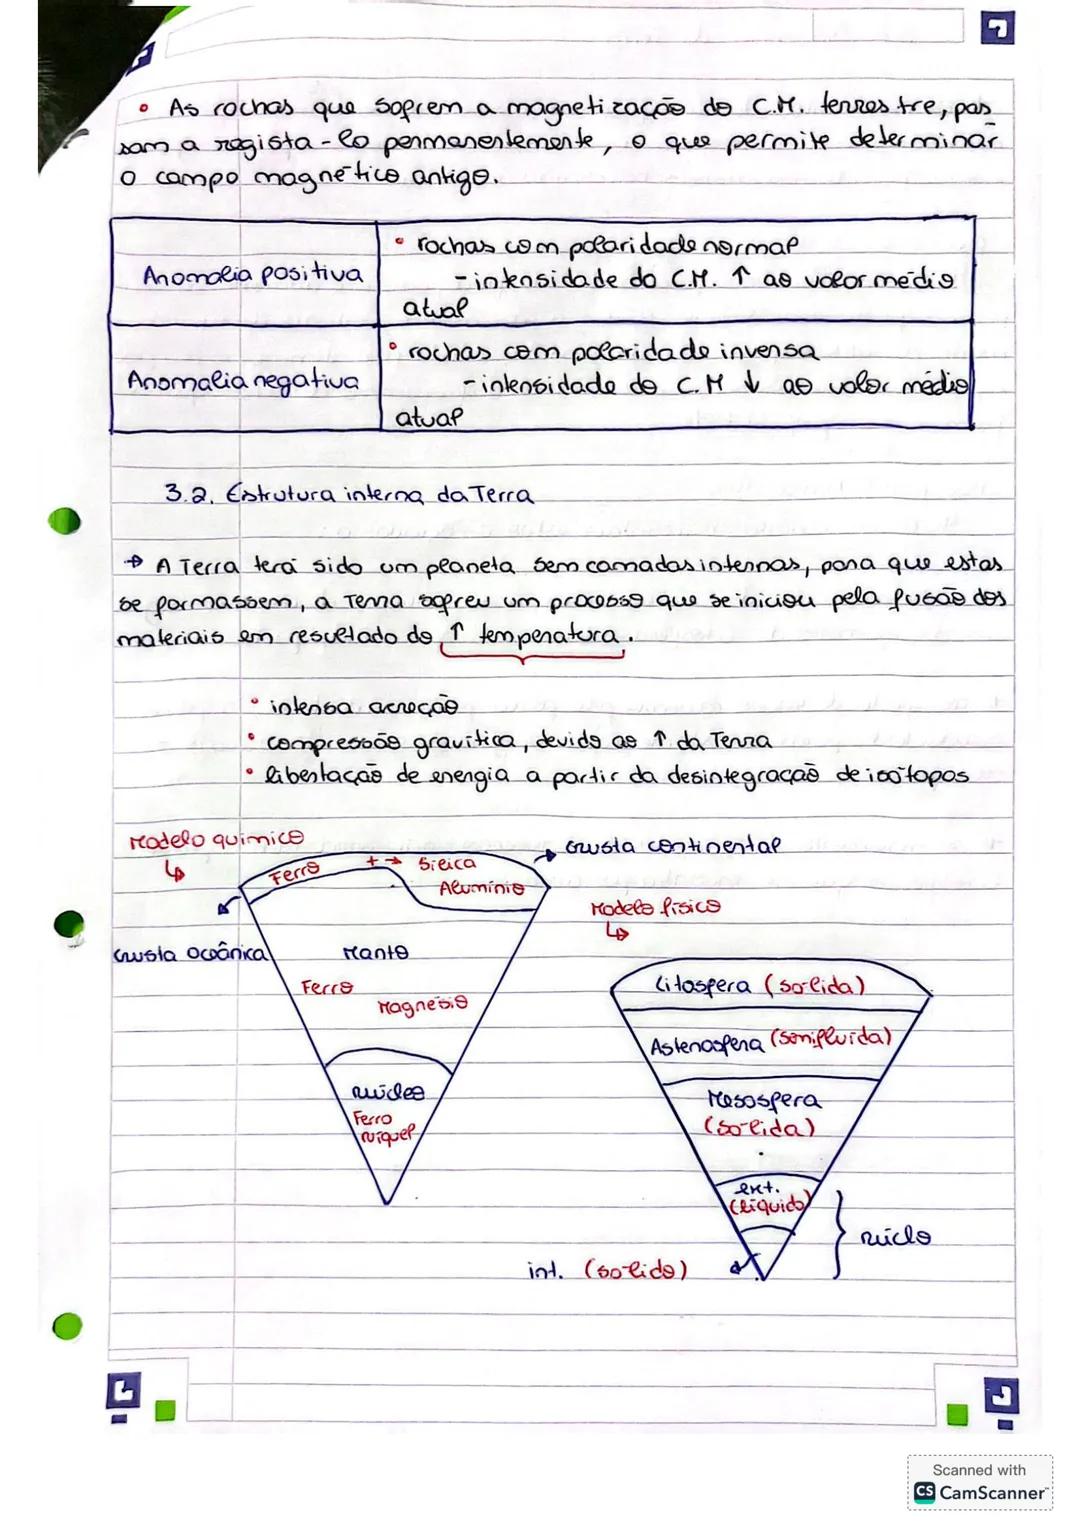 • As rochas que sofrem a magnetização do C.M. terrestre, pas
sam a regista-lo permanentemente, o que permite determinar
o campo magnético antigo.
Anomalia positiva
• rochas com polaridade normal
- intensidade do C.M. ↑ ao valor médio
atual
Anomalia negativa
• rochas com polaridade inversa
- intensidade do C.M ↓ ao valor médio
atual
3.2. Estrutura interna da Terra
→ A Terra terá sido um planeta sem camadas internas, para que estas
se formassem, a Terra sofreu um processo que se iniciou pela fusão dos
materiais em resultado do ↑ temperatura.
• intensa acreção
• compressão gravítica, devido ao ↑ da Terra
• libertação de energia a partir da desintegração de isótopos
Modelo químico
crusta continental
Ferro
+ → Sílica
Alumínio
Modelo físico
crusta oceânica
Manto
Ferro
Magnésio
núcleo
Ferro
níquel
Litosfera (sólida)
Astenosfera (semifluída)
Mesosfera
(sólida)
ext.
(líquido)
núclo
int. (sólido)
Scanned with
CS CamScanner